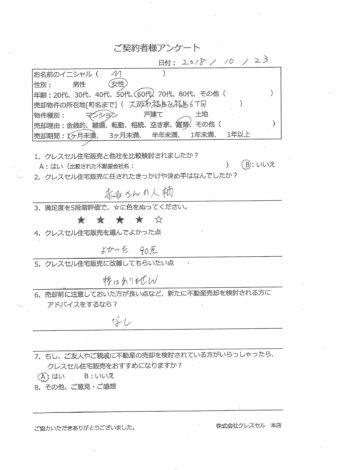 ご契約者様アンケート
日付: 2018 / 10 / 23
お名前のイニシャル ( M )
性別: 男性 女性
年齢: 20代、30代、40代、50代、60代、70代、80代、その他 ( )
売却物件の所在地[町名まで] ( 大阪市 6丁目 )
物件種別: マンション 戸建て 土地
売却理由: 金銭的、離婚、転勤、相続、空き家、その他 ( )
売却期間: 1ヶ月未満、 3ヶ月未満、 半年未満、 1年未満、 1年以上
1、クレスセル住宅販売と他社を比較検討されましたか?
A:はい (比較された不動産会社名: ) B:いいえ
2、クレスセル住宅販売に任されたきっかけや決め手はなんでしたか?
さんの人柄
3、満足度を5段階評価で、☆に色をぬってください。
★ ★ ★ ★ ☆
4、クレスセル住宅販売を選んでよかった点
よかった 90点
5、クレスセル住宅販売に改善してもらいたい点
特にありません
6、売却前に注意しておいた方が良い点など、新たに不動産売却を検討される方に
アドバイスをするなら?
なし
7、もし、ご友人やご親戚に不動産の売却を検討されている方がいらっしゃったら、
クレスセル住宅販売をおすすめになりますか?
A:はい B:いいえ
8、その他、ご意見・ご感想
ご協力いただきありがとうございました。 株式会社クレスセル 本店